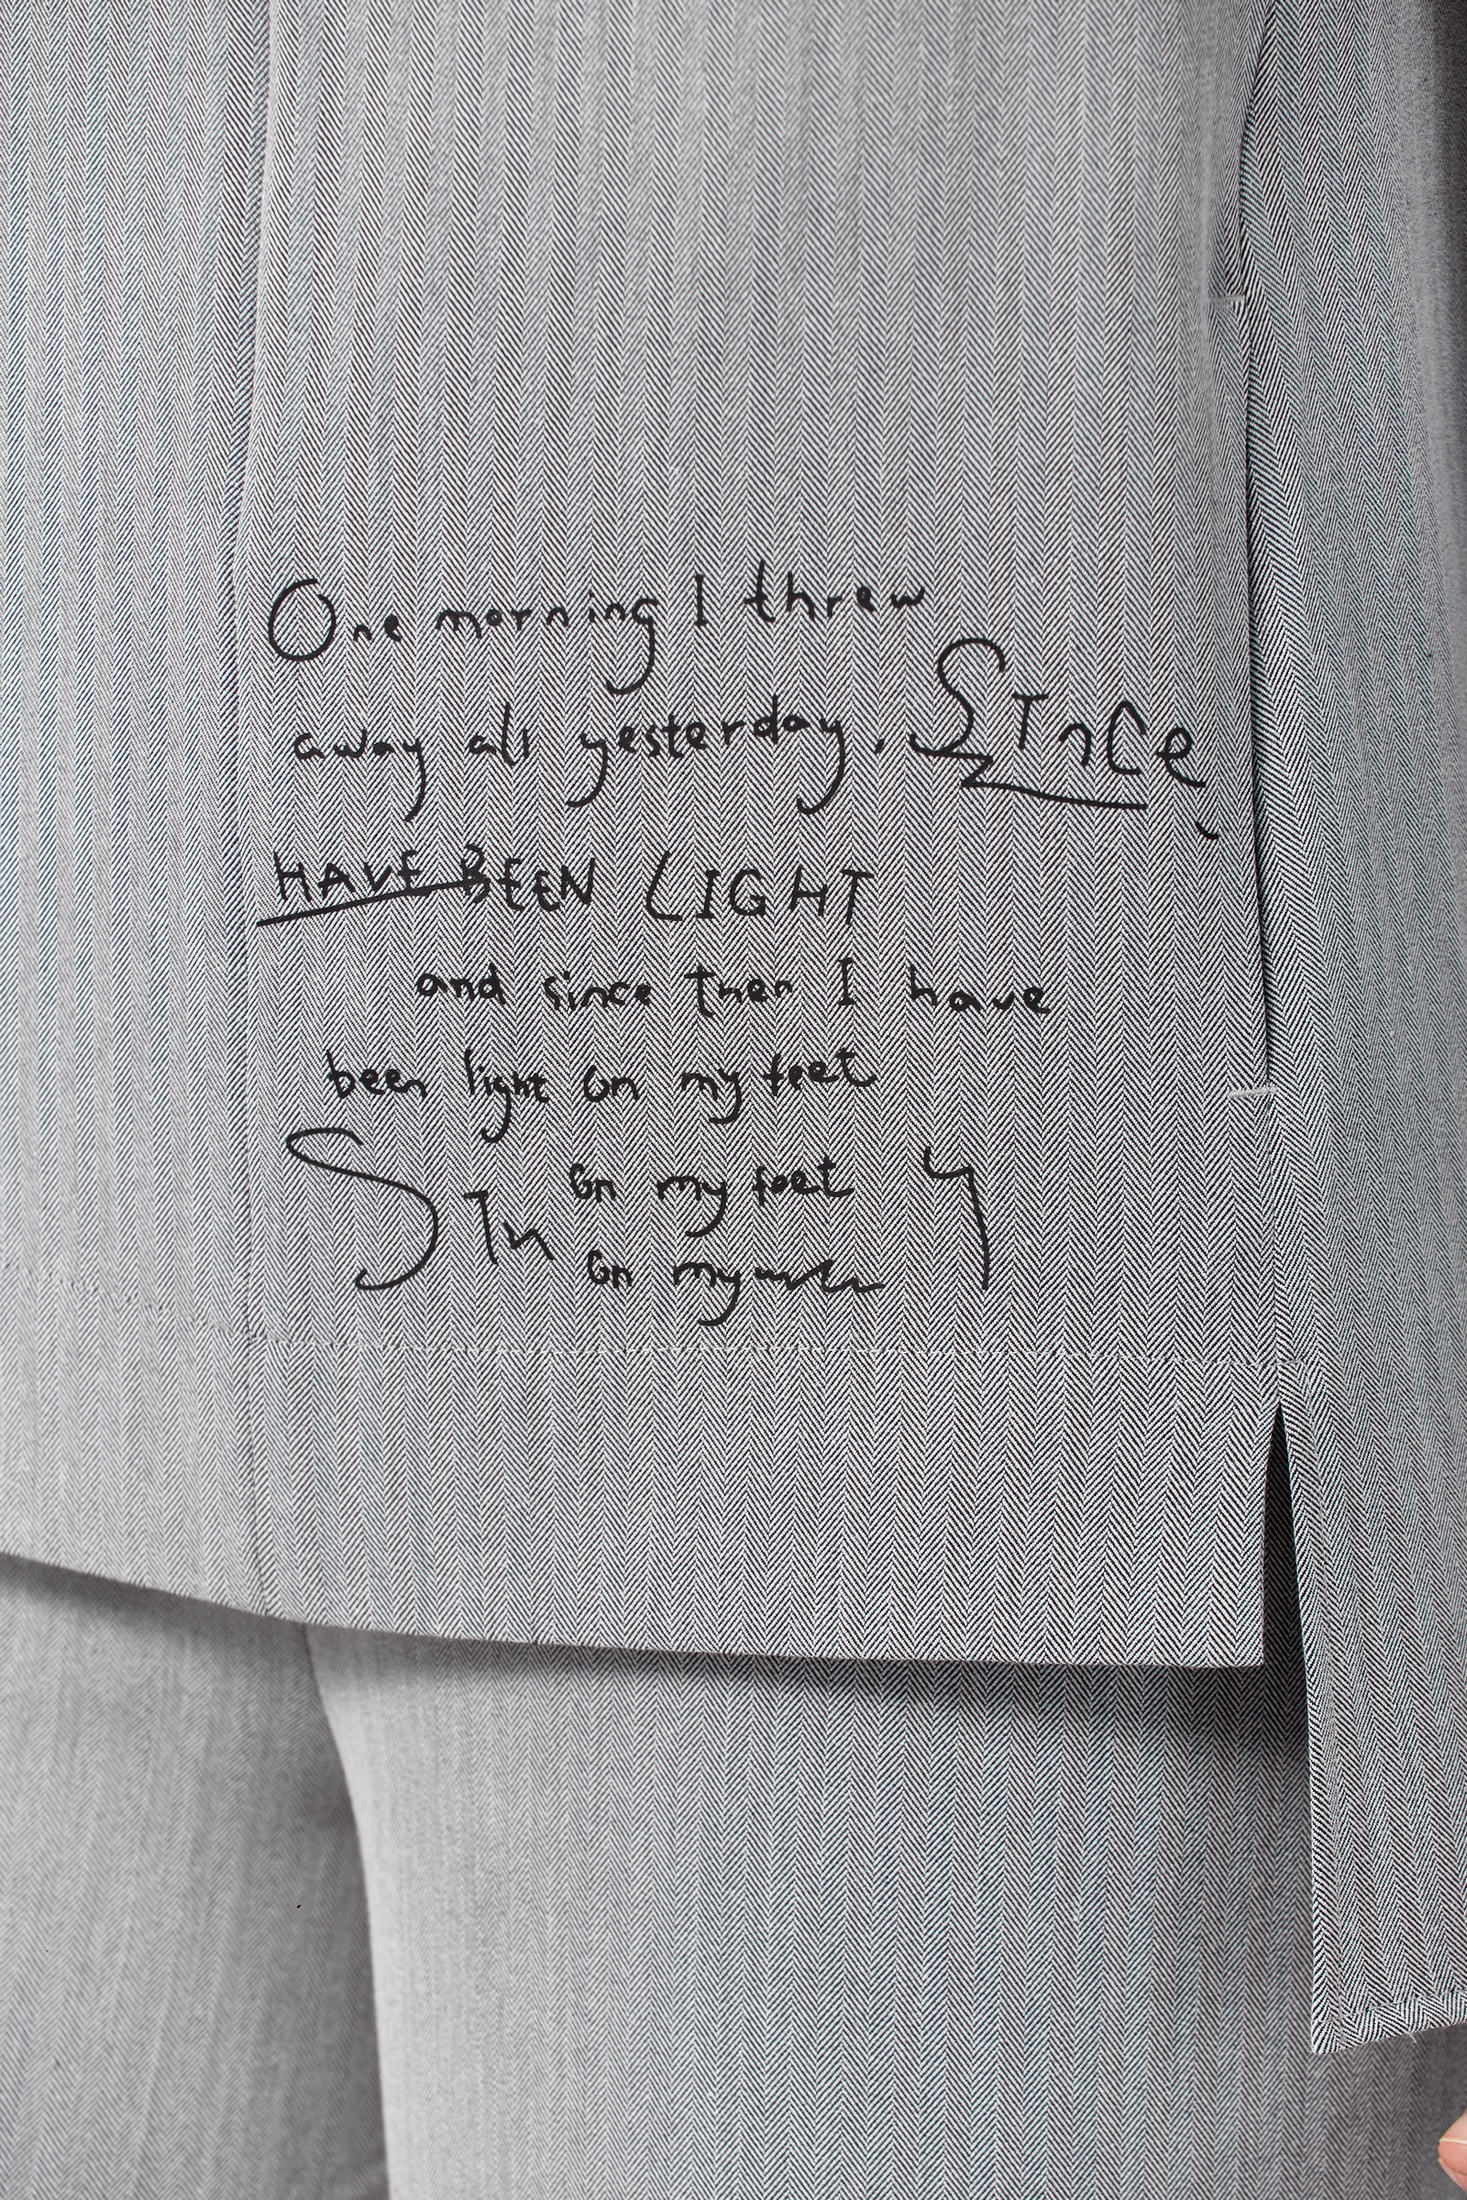 One morning I threw
away all yesterday. SInce,
HAVE BEEN LIGHT
and since then I have
been light on my feet
SIn on my feet y
on my